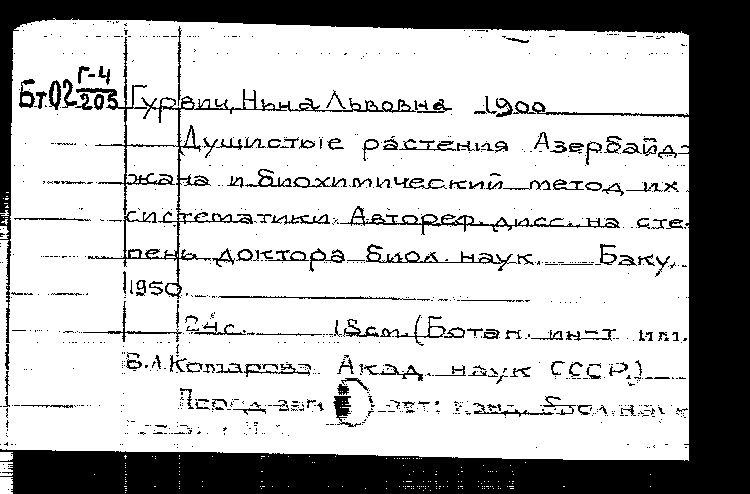 Бт02 Г-4/203
Гурвич, Нина Львовна 1900
Душистые растения Азербайд-
жана и биохимический метод их
систематики. Автореф. дисс. на сте-
пень доктора биол. наук. Баку,
1950.
24с. 18см. (Ботан. ин-т им.
В.Л.Комарова Акад. наук СССР.)
Перед заг авт: канд. биол. наук